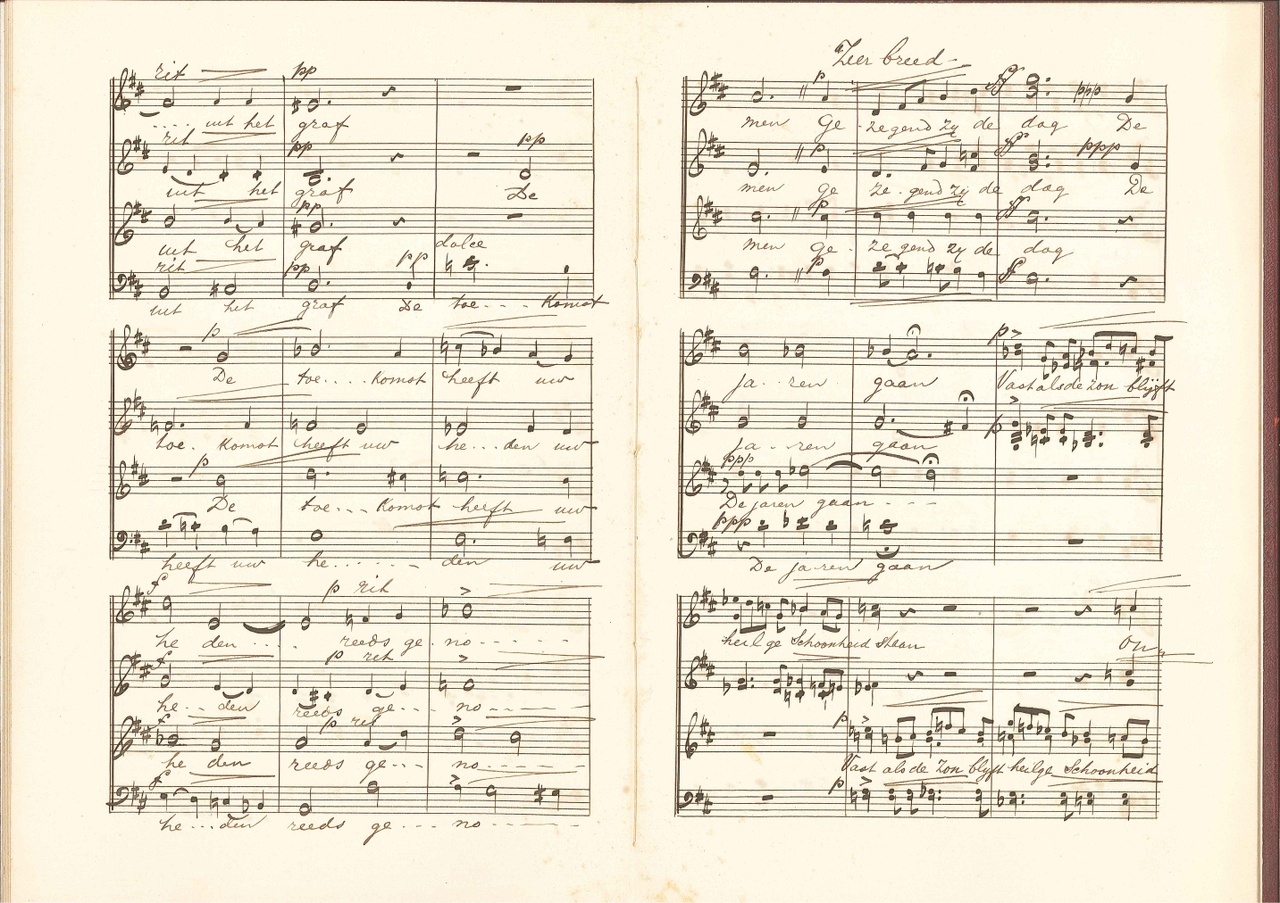 rit pp
.... uit het graf
rit pp pp
uit het graf De
pp
uit het graf dolce
rit pp pp
uit het graf De toe - - - Komst
p
De toe.... Komst heeft uw
toe. Komst heeft uw he...den uw
p
De toe... Komst heeft uw
heeft uw he...... - den uw
f p rit
he den .... reeds ge. no - - - - -
f p rit
he... den reeds ge... no - - - - -
f p rit
he den reeds ge... no - - - - -
f
he...den reeds ge... no - - - - - -
Zeer breed -
p ff ppp
men Ge zegend zy de dag De
ff ppp
men ge ze. gend zy de dag De
ff
men ge. ze gend zy de dag
p f
p
ja.. ren gaan Vast als de zon blijft
p
ja.. ren gaan
ppp
De jaren gaan - - -
ppp
De ja ren gaan
heil ge Schoonheid Staan On
p
Vast als de Zon blyft heilge Schoonheid
p